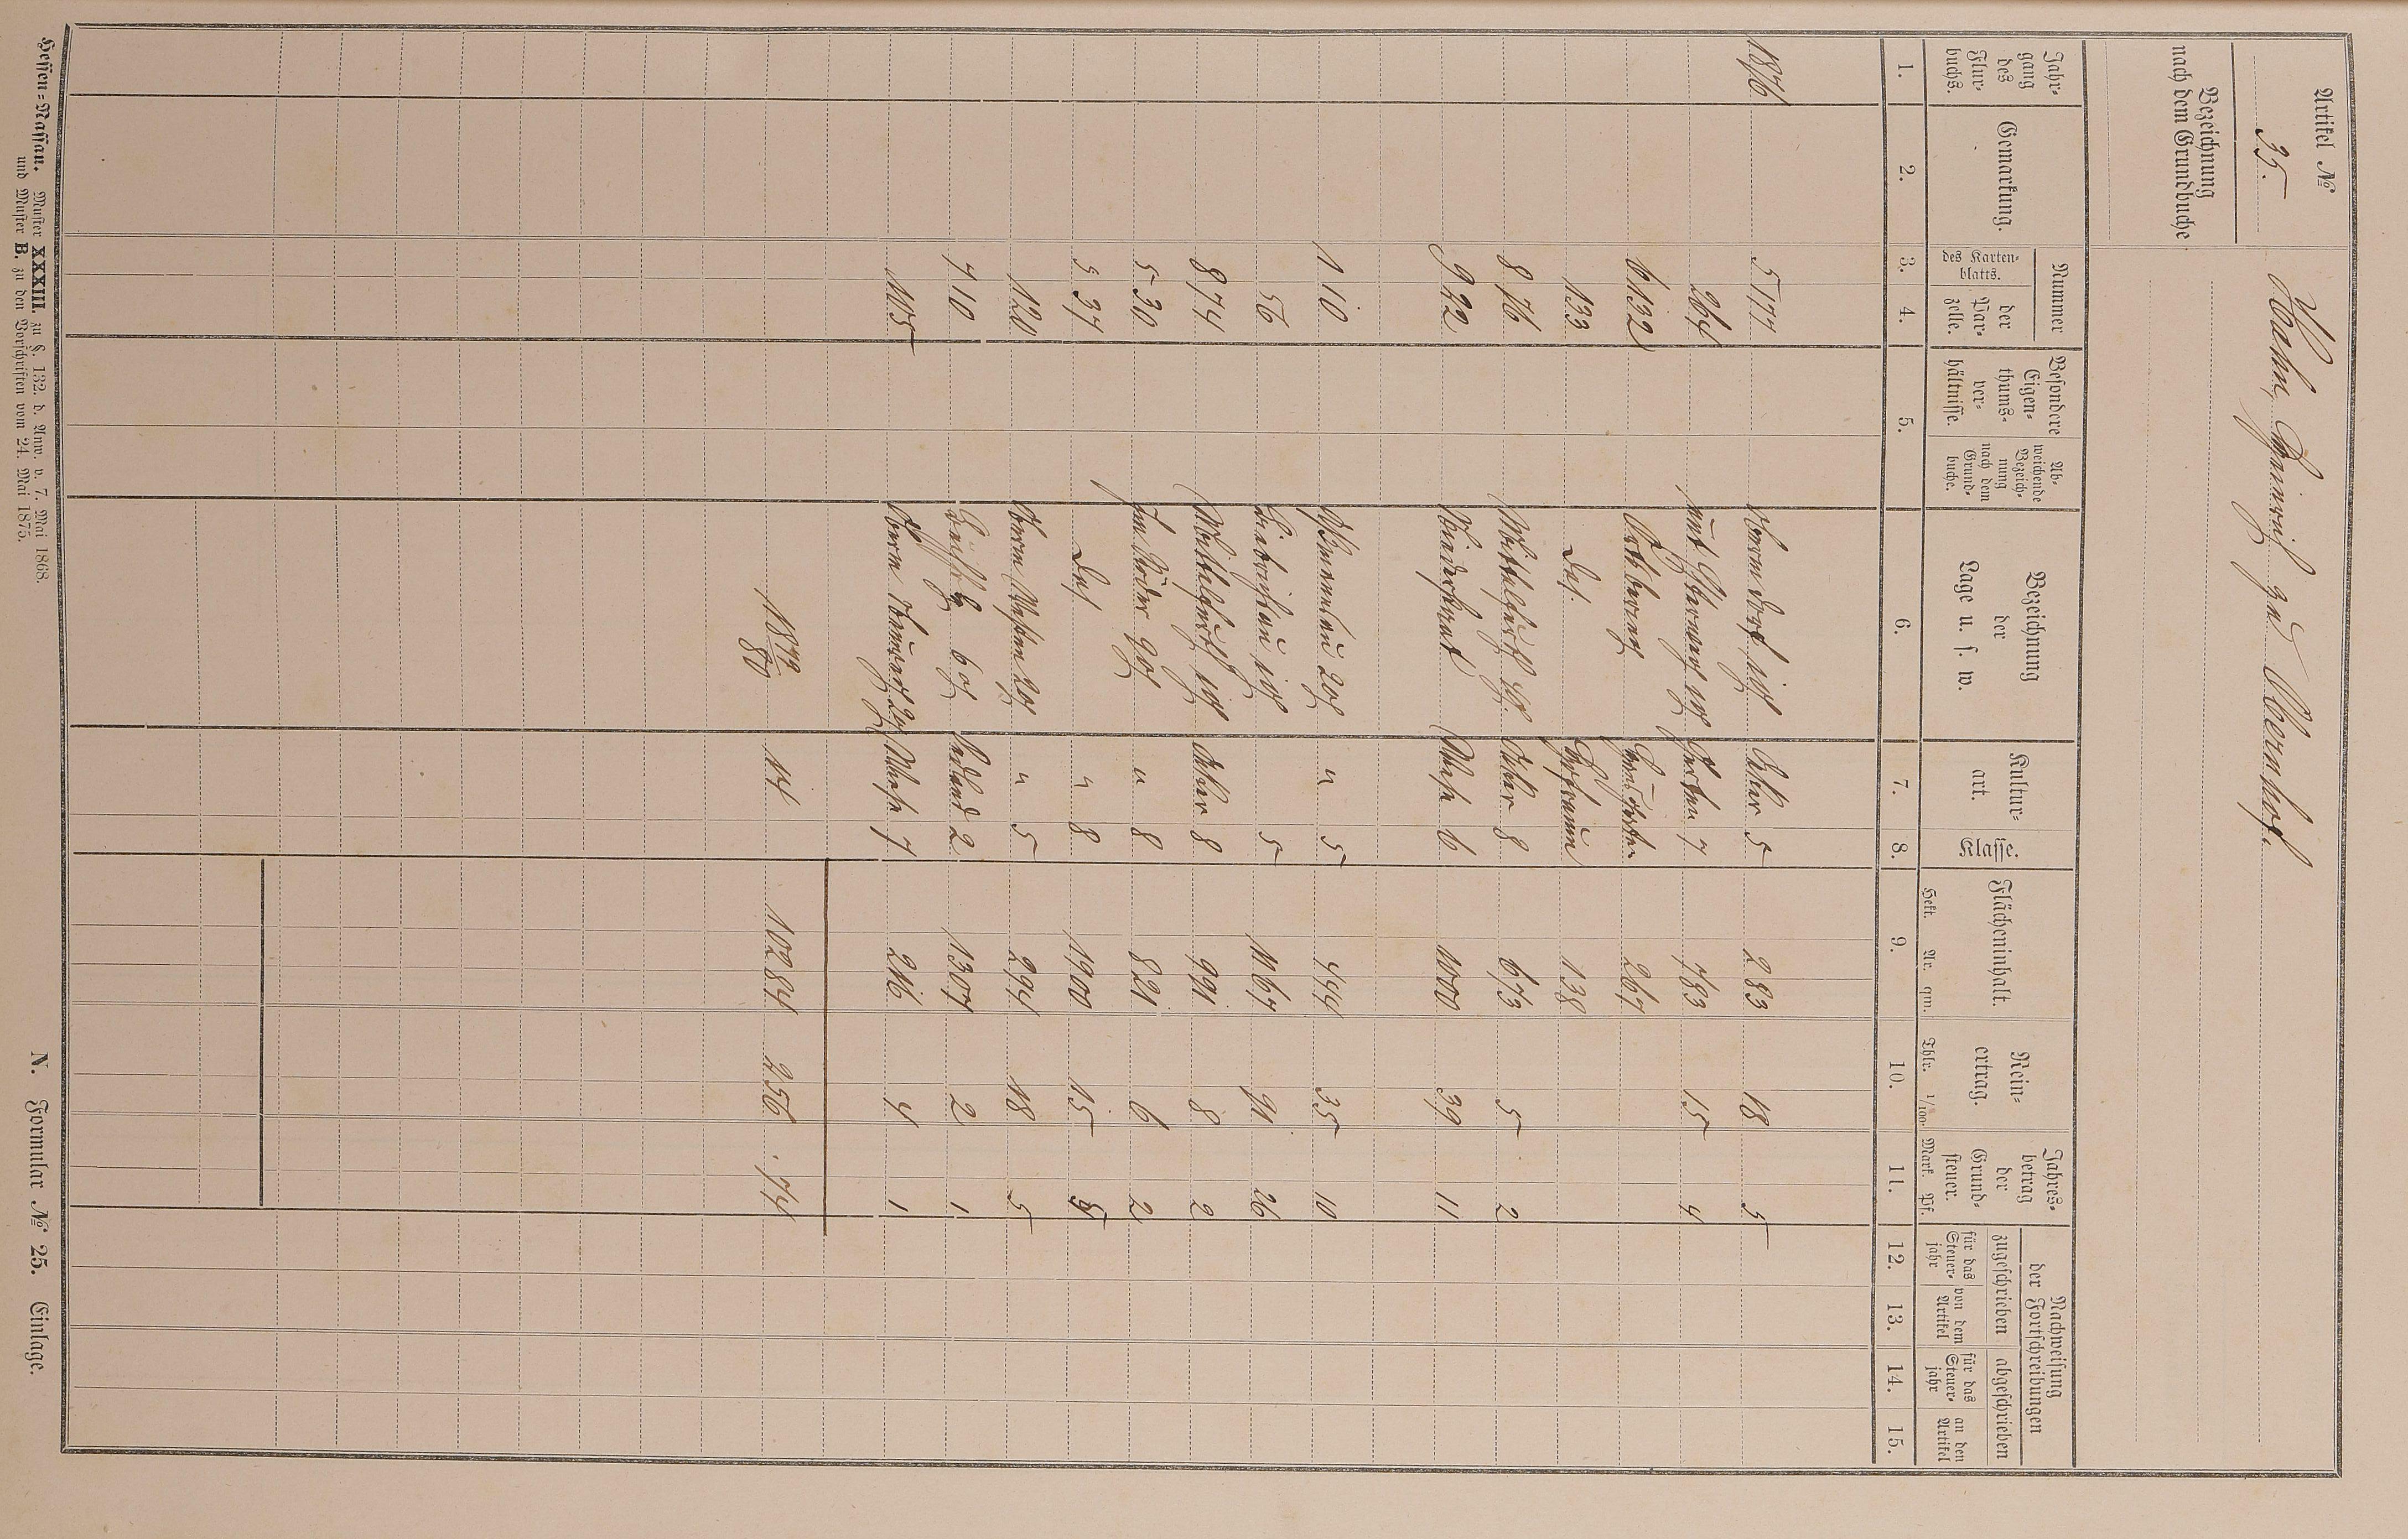 Artikel № 35.
Bezeichnung nach dem Grundbuche
Hahn, Heinrich zu Obernhof.
Jahrgang des Flurbuchs.
Gemarkung.
Nummer
des Kartenblatts.
der Parzelle.
Besondere Eigenthumsverhältnisse.
Abweichende Bezeichnung nach dem Grundbuche.
Bezeichnung der Lage u. s. w.
Kulturart.
Klasse.
Flächeninhalt.
Hekt. Ar. qm.
Reinertrag.
Thlr. 1/100.
Jahresbetrag der Grundsteuer.
Mark. Pf.
Nachweisung der Fortschreibungen
zugeschrieben abgeschrieben
für das Steuerjahr
von dem Artikel
für das Steuerjahr
an den Artikel
1. 2. 3. 4. 5. 6. 7. 8. 9. 10. 11. 12. 13. 14. 15.
1876 5 177 Acker 5 283 18 5
264 Garten 7 783 15 4
6 132 267
133 Das Hofraum 138
8 76 Acker 8 673 5 2
9 22 Wiese 6 1000 39 11
1 10 " 5 444 35 10
56 5 1167 91 26
8 74 Acker 8 991 8 2
5 30 Im Röder " 8 821 6 2
5 37 Das " 8 1900 15 5
120 " 5 294 18 5
7 10 2 1307 2 1
115 Wiese 7 216 4 1
1879/80 14 10284 256 74
Hessen=Nassau. Muster XXXIII. zu §. 132. d. Anw. v. 7. Mai 1868.
und Muster B. zu den Vorschriften vom 24. Mai 1875.
N. Formular № 25. Einlage.